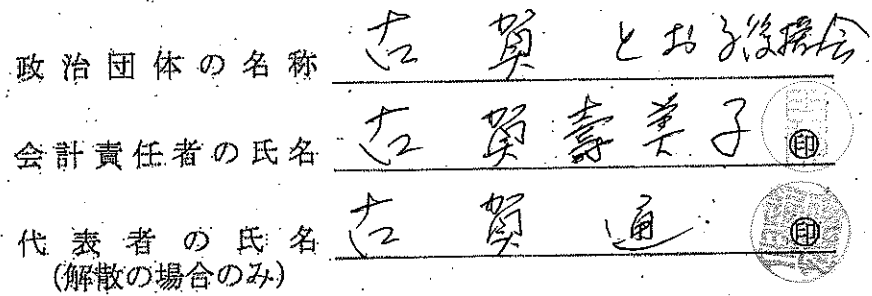 政治団体の名称 古賀とおる後援会
会計責任者の氏名 古賀壽美子 印
代表者の氏名 古賀通 印
(解散の場合のみ)